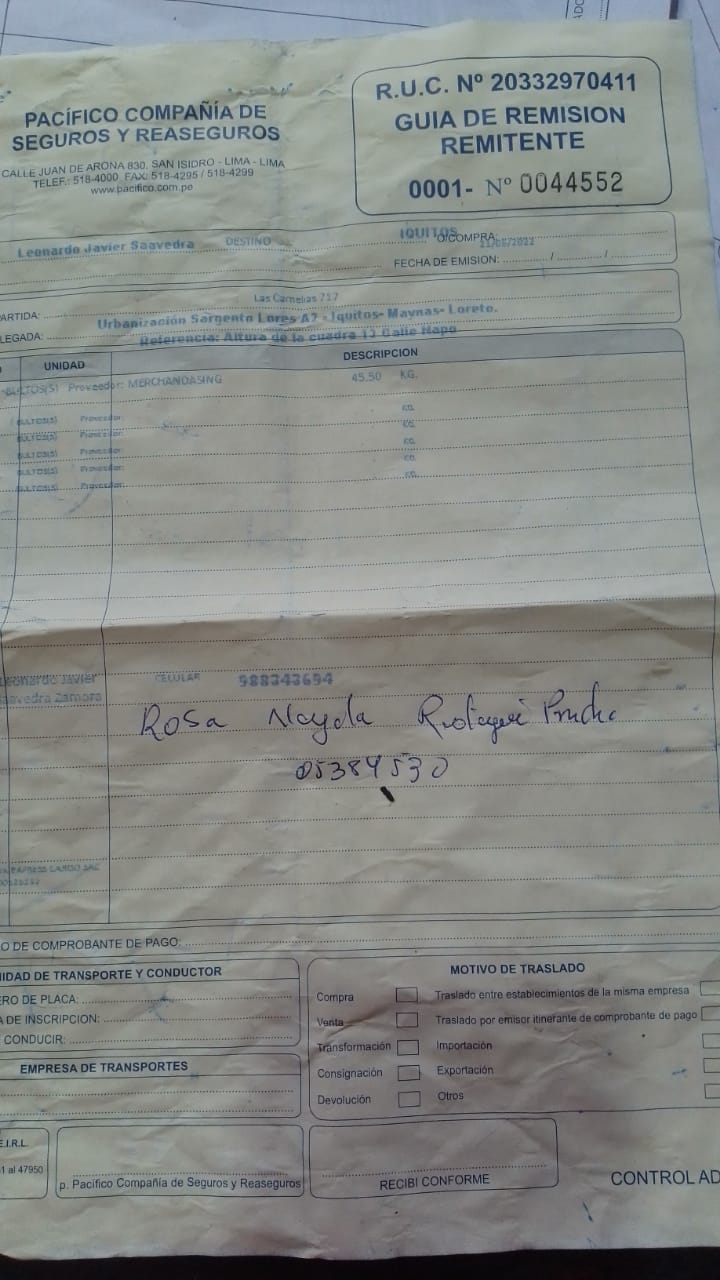 PACÍFICO COMPAÑÍA DE
SEGUROS Y REASEGUROS
CALLE JUAN DE ARONA 830, SAN ISIDRO - LIMA - LIMA
TELEF.: 518-4000 FAX: 518-4295 / 518-4299
www.pacifico.com.pe
R.U.C. Nº 20332970411
GUIA DE REMISION
REMITENTE
0001- Nº 0044552
Leonardo Javier Saavedra DESTINO IQUITOS
O/COMPRA:
FECHA DE EMISION: / /
ARTIDA: Las Camelias 717
LEGADA: Urbanización Sargento Lores A2 - Iquitos- Maynas- Loreto.
Referencia: Altura de la cuadra 13 Calle Napo
UNIDAD DESCRIPCION
BULTOS(S) Proveedor: MERCHANDASING 45.50 KG.
BULTOS(S) Proveedor: KG.
BULTOS(S) Proveedor: KG.
BULTOS(S) Proveedor: KG.
BULTOS(S) Proveedor: KG.
BULTOS(S) Proveedor: KG.
Leonardo Javier CELULAR 988343694
aavedra Zamora
Rosa
05384530
EXPRESS CARGO SAC
O DE COMPROBANTE DE PAGO:
NIDAD DE TRANSPORTE Y CONDUCTOR
ERO DE PLACA:
A DE INSCRIPCION:
CONDUCIR:
EMPRESA DE TRANSPORTES
MOTIVO DE TRASLADO
Compra Traslado entre establecimientos de la misma empresa
Venta Traslado por emisor itinerante de comprobante de pago
Transformación Importación
Consignación Exportación
Devolución Otros
E.I.R.L.
1 al 47950
p. Pacífico Compañía de Seguros y Reaseguros
RECIBI CONFORME
CONTROL AD